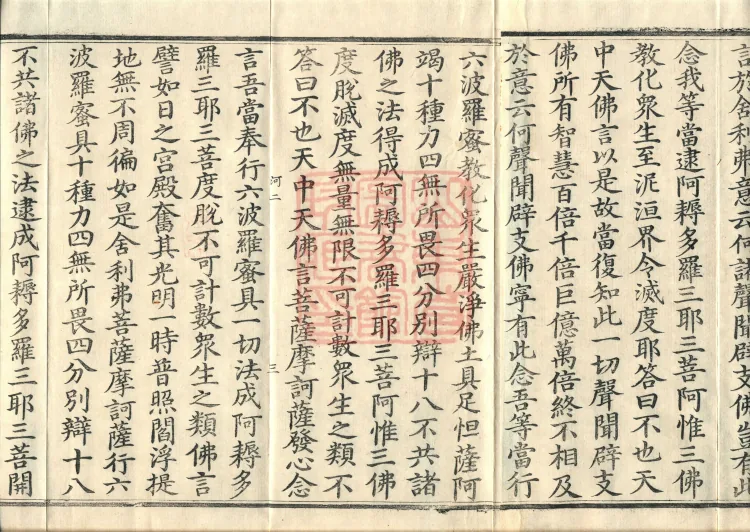 言於舍利弗意云何諸聲聞辟支佛豈有此
念我等當逮阿耨多羅三耶三菩阿惟三佛
教化衆生至泥洹界令滅度耶答曰不也天
中天佛言以是故當復知此一切聲聞辟支
佛所有智慧百倍千倍巨億萬倍終不相及
於意云何聲聞辟支佛寧有此念吾等當行
六波羅蜜教化衆生嚴淨佛土具足怛薩阿
竭十種力四無所畏四分別辯十八不共諸
佛之法得成阿耨多羅三耶三菩阿惟三佛
度脫滅度無量無限不可計數衆生之類不
答曰不也天中天佛言菩薩摩訶薩發心念
河二 三
言吾當奉行六波羅蜜具一切法成阿耨多
羅三耶三菩度脫不可計數衆生之類佛言
譬如日之宮殿奮其光明一時普照閻浮提
地無不周徧如是舍利弗菩薩摩訶薩行六
波羅蜜具十種力四無所畏四分別辯十八
不共諸佛之法逮成阿耨多羅三耶三菩開